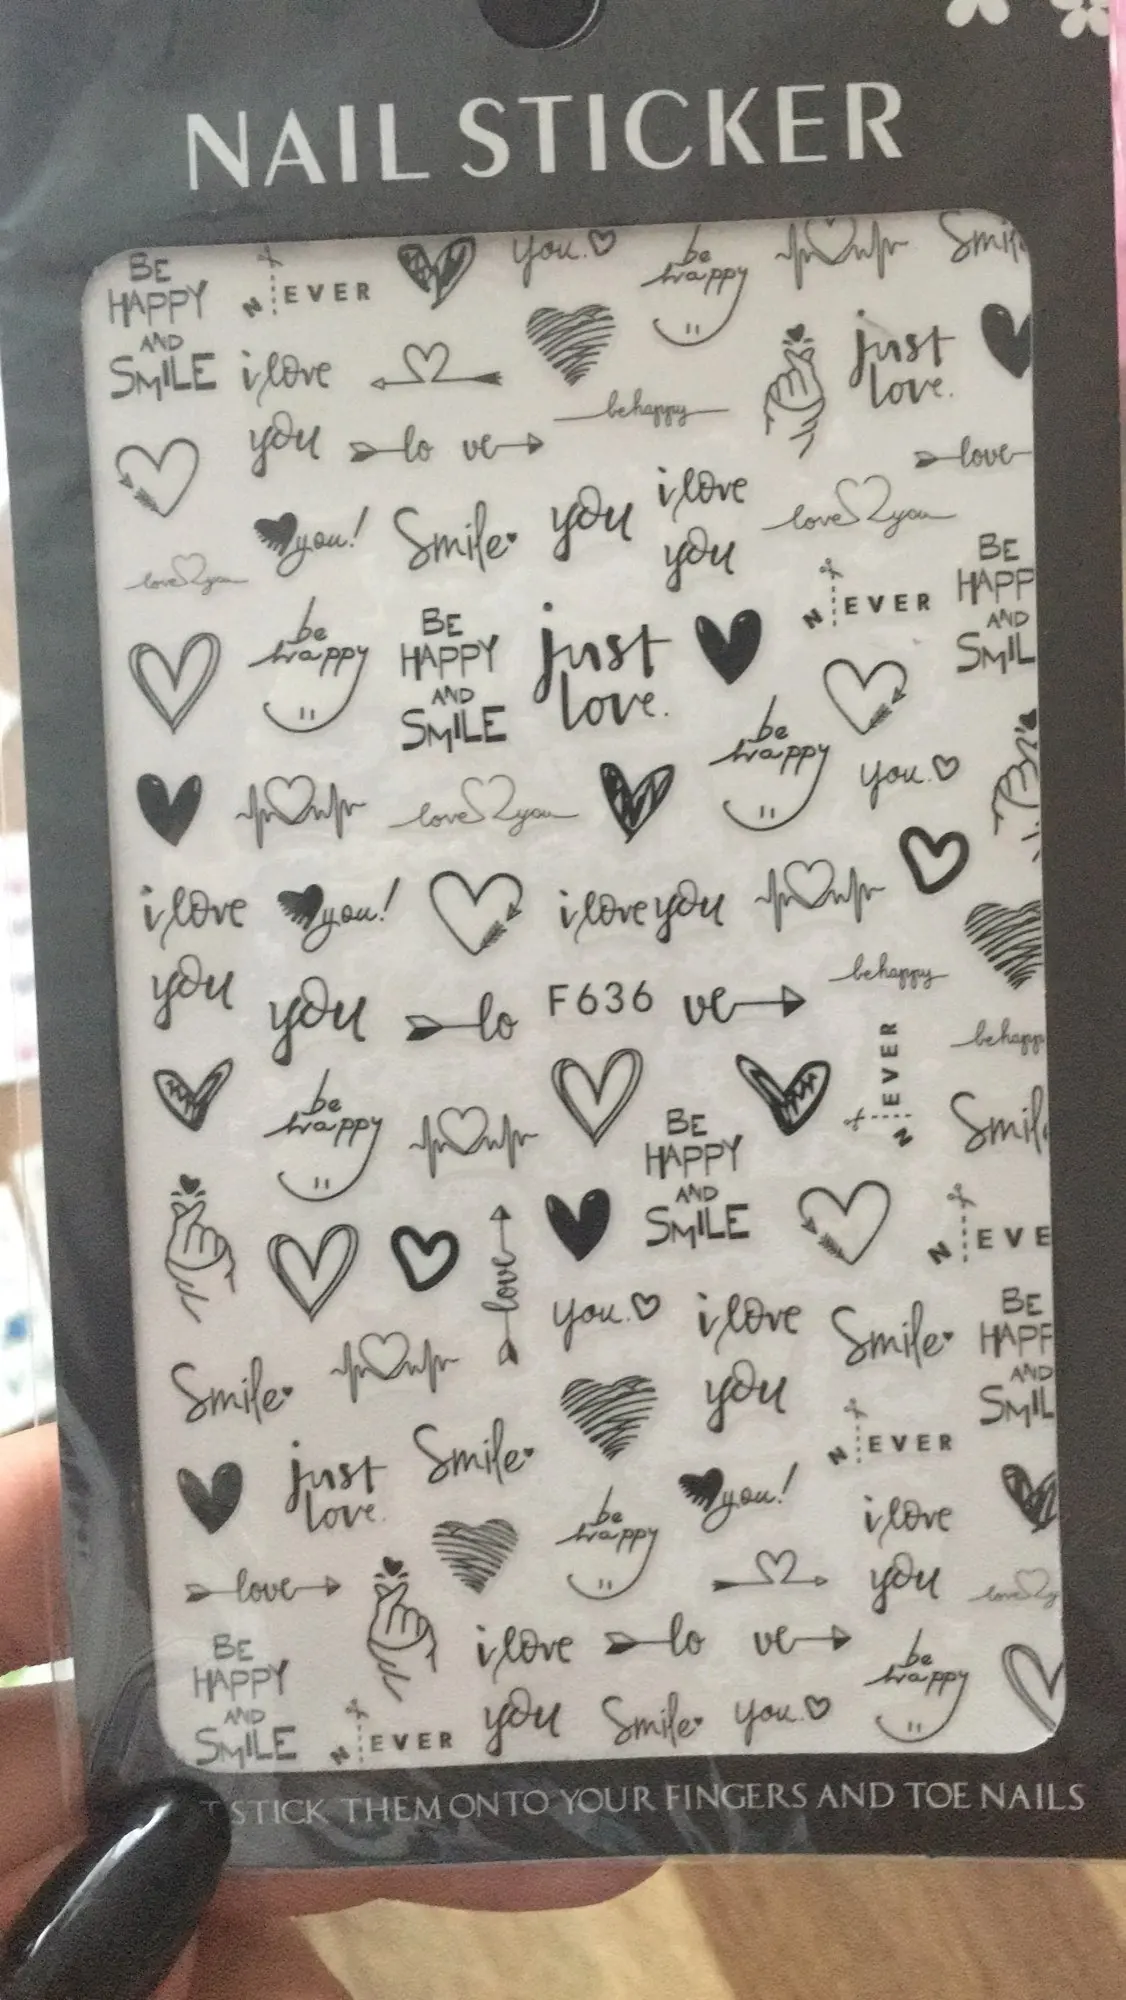 NAIL STICKER
BE
HAPPY
AND
SMILE
N EVER
you.
be
happy
Smil
i love
you
just
love.
be happy
lo ve
love
you!
Smile
you
i love
you
love you
love you
BE
HAPP
AND
SMIL
N EVER
be
happy
BE
HAPPY
AND
SMILE
just
love.
be
happy
you.
love you
i love
you
you!
i love you
you
lo
F636
ve
be happy
be happy
N EVER
be
happy
BE
HAPPY
AND
SMILE
Smil
N EVE
love
you.
i love
you
Smile
BE
HAPP
AND
SMIL
Smile
just
love.
Smile
N EVER
you!
be
happy
i love
you
love
love y
BE
HAPPY
AND
SMILE
N EVER
i love
you
lo ve
Smile
you.
be
happy
T STICK THEM ONTO YOUR FINGERS AND TOE NAILS